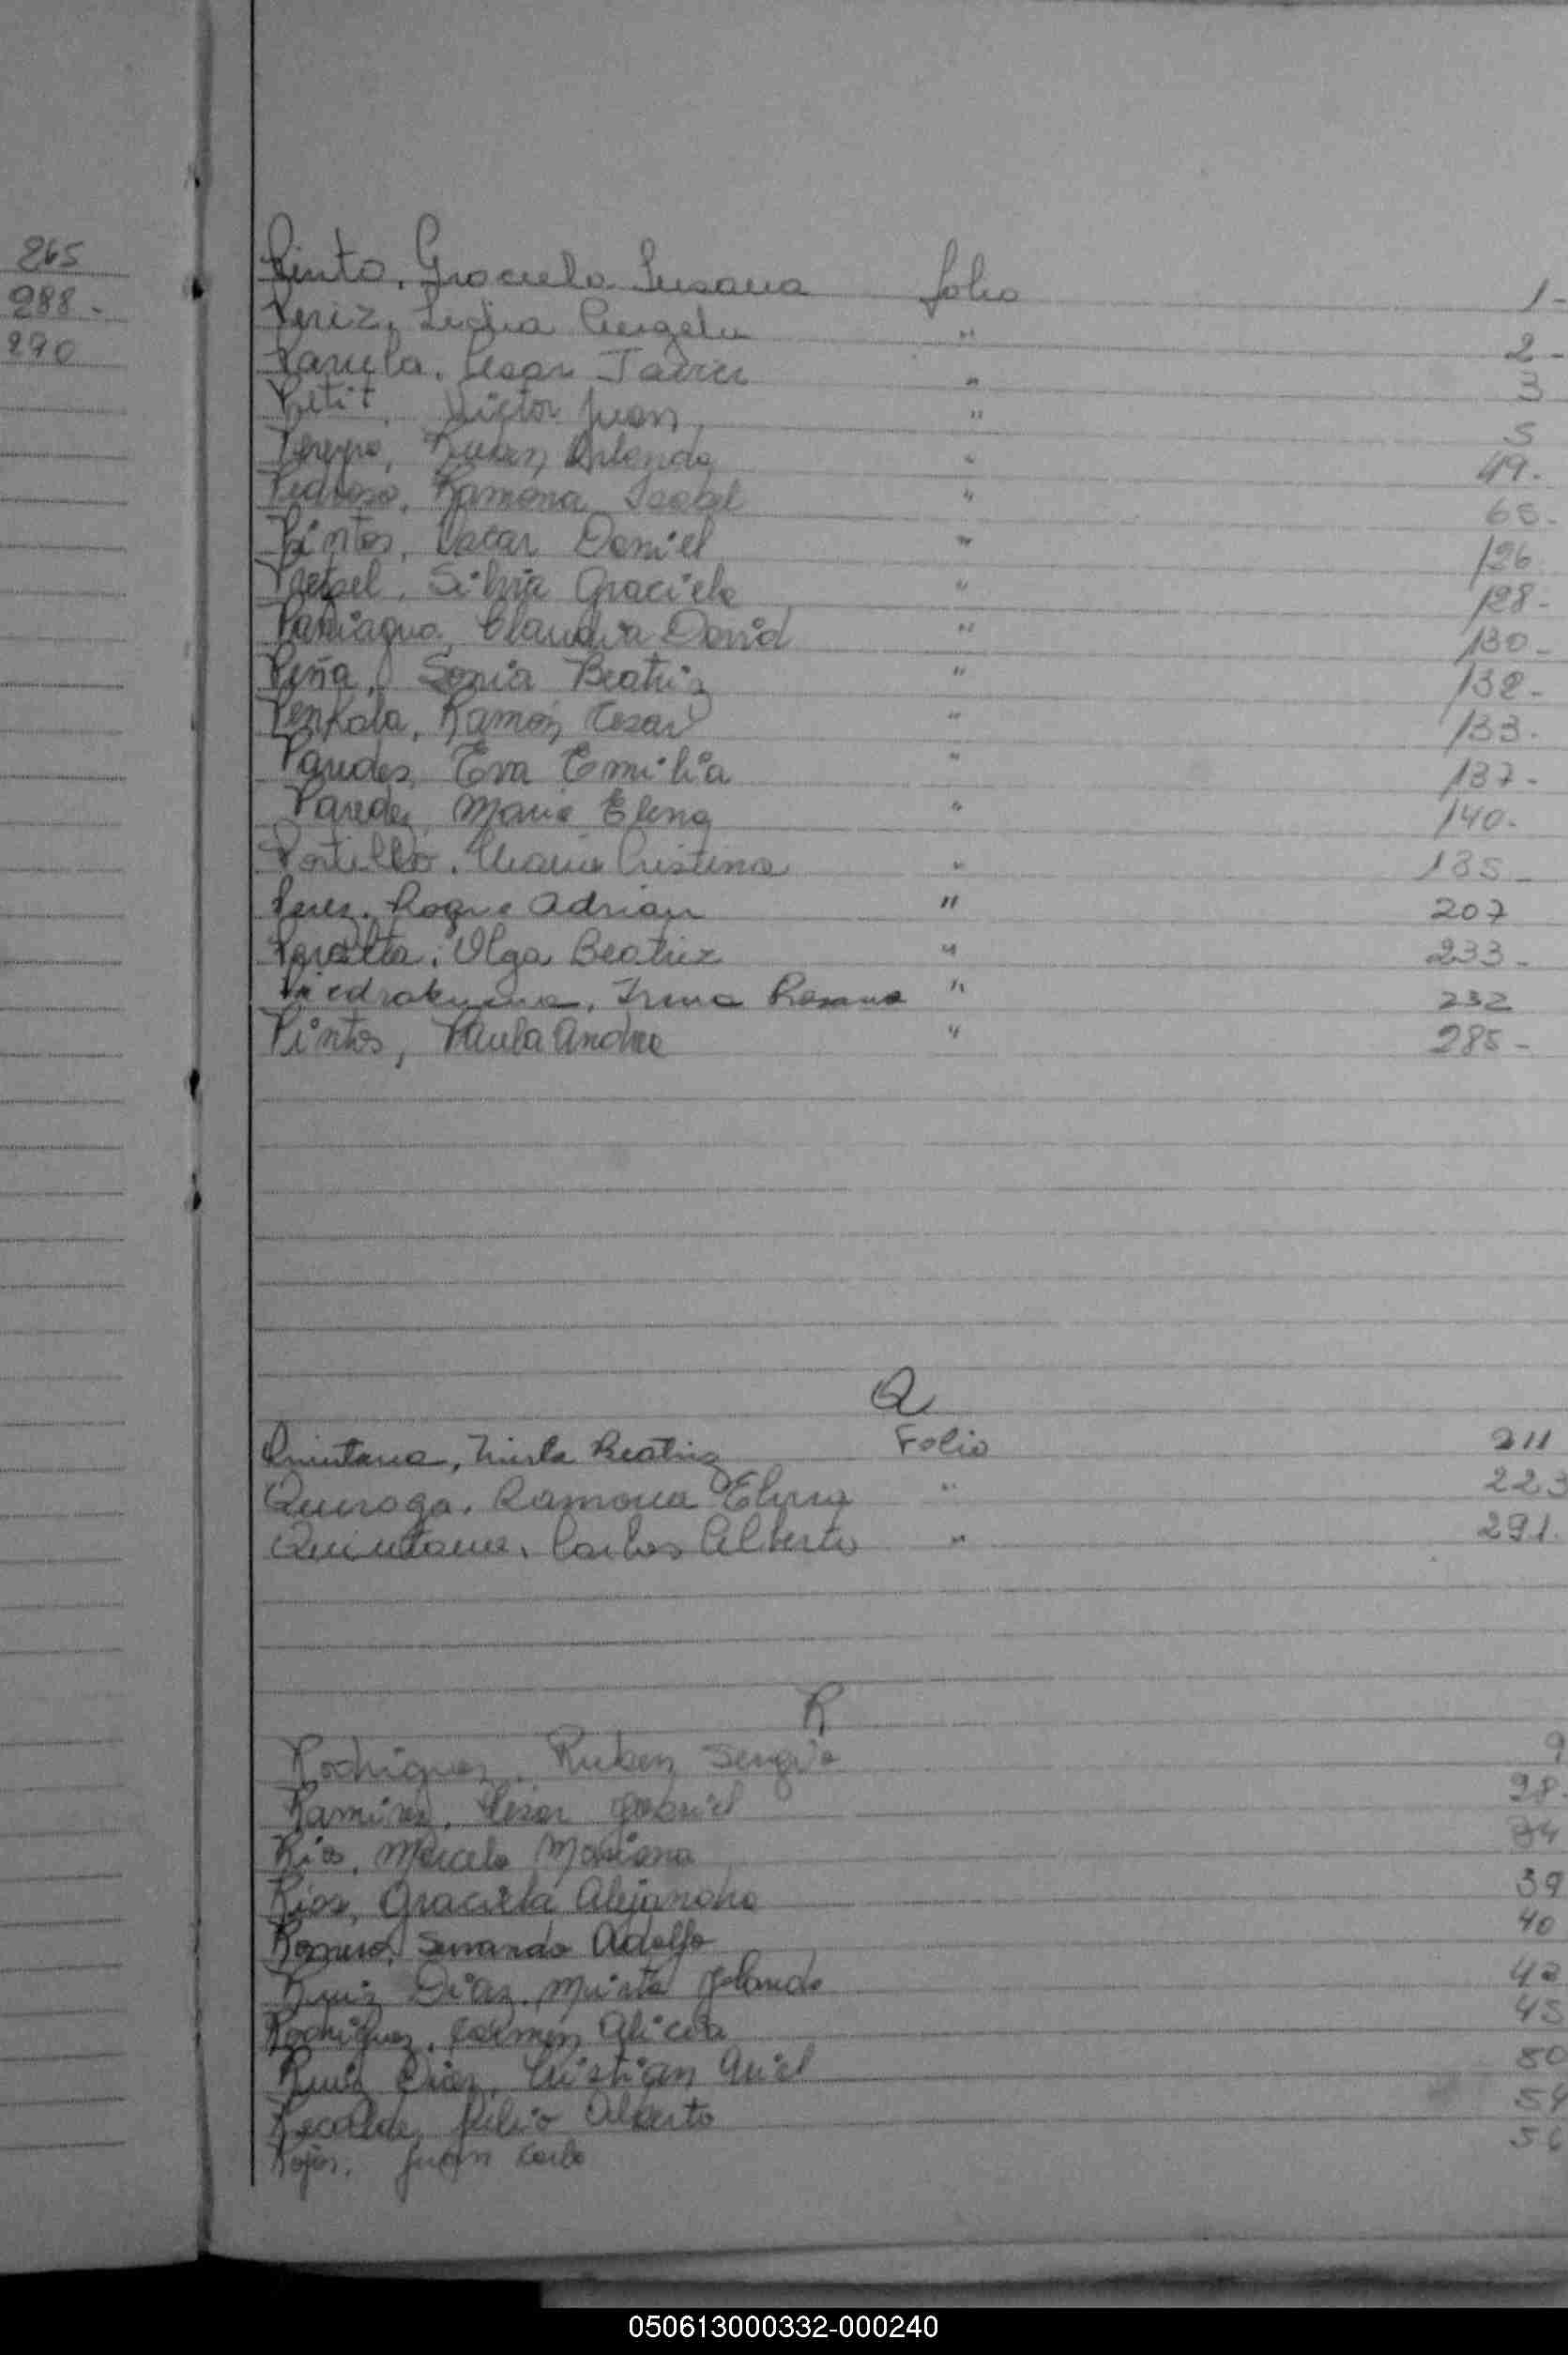 265
288 -
290
Pinto, Graciela Susana folio 1-
Periz, Lidia Angela " 2-
Cesar Javier " 3
Petit, Victor Juan " 5
Pereyra, Ruben Orlando " 49.
Pedroso, Ramona Isabel " 65.
Pintos, Oscar Daniel " 126
Silvia Graciela " 128-
Paniagua, Claudia David " 130-
Peña, Sonia Beatriz " 132-
Penkala, Ramón Cesar " 133.
Paredes, Eva Emilia " 137-
Paredes, Maria Elena " 140-
Portillo, Maria Cristina " 185-
Perez, Roque Adrian " 207
Peralta, Olga Beatriz " 233-
Piedrabuena, Irma Rosana " 232
Pintos, Paula Andrea " 285-
Q
Quintana, Mirta Beatriz Folio 211
Quiroga, Ramona Elvira " 223
Quintana, Carlos Alberto " 291.
R
Rodriguez, Ruben Sergio 9
Ramirez, Cesar Gabriel 28.
Rios, Marcelo Mariano 34
Rios, Graciela Alejandra 39
Romero, Servando Adolfo 40
Ruiz Diaz, Mirta Yolanda 42
Rodriguez, Carmen Alicia 45
Ruiz Diaz, Cristian Ariel 50
Recalde, Julio Alberto 54
Rojas, Juan Carlo 56
050613000332-000240